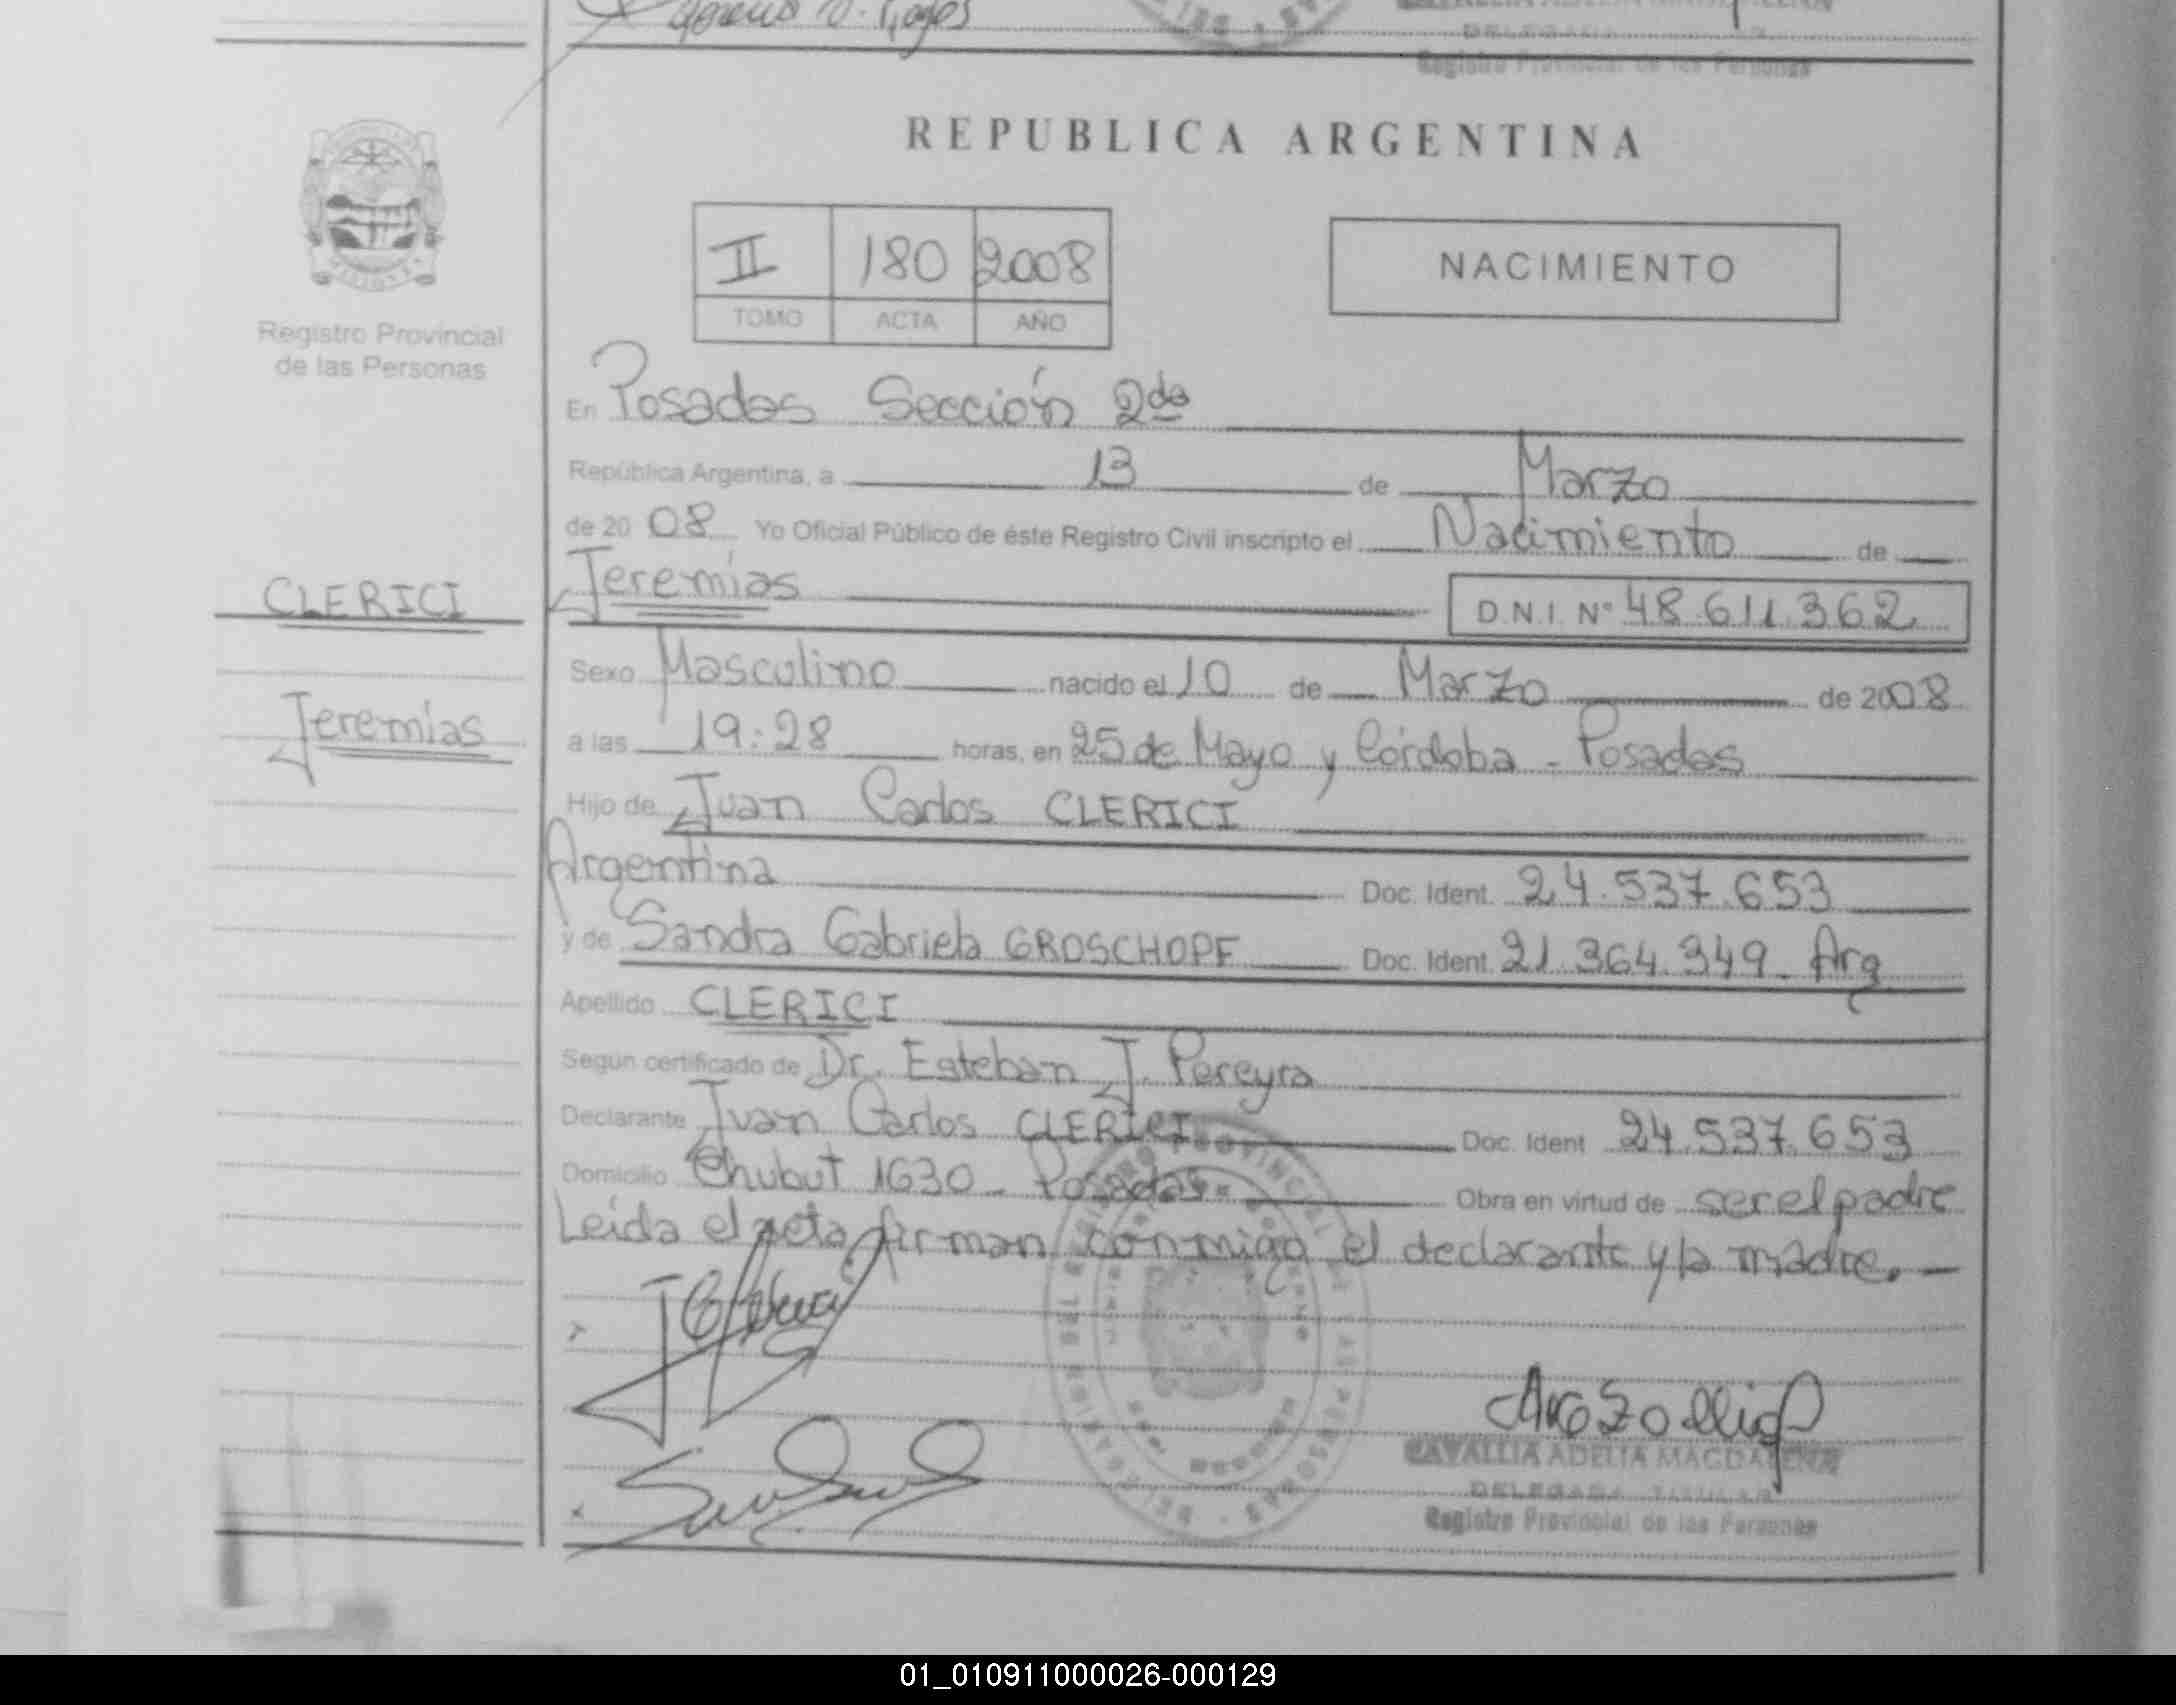 Registro Provincial de las Personas
REPUBLICA ARGENTINA
II 180 2008
TOMO ACTA AÑO
NACIMIENTO
MISIONES
Registro Provincial
de las Personas
En Posadas Sección 2da
República Argentina, a 13 de Marzo
de 20 08 Yo Oficial Público de éste Registro Civil inscripto el Nacimiento de
CLERICI
Jeremías
D.N.I. Nº 48.611.362
Sexo Masculino nacido el 10 de Marzo de 2008
Jeremías
a las 19:28 horas, en 25 de Mayo y Córdoba - Posadas
Hijo de Juan Carlos CLERICI
Argentina Doc. Ident. 24.537.653
y de Sandra Gabriela GROSCHOPF Doc. Ident. 21.364.349- Arg
Apellido CLERICI
Según certificado de Dr. Esteban J. Pereyra
Declarante Juan Carlos CLERICI Doc. Ident 24.537.653
Domicilio Chubut 1630- Posadas- Obra en virtud de ser el padre
Leída el acta firman conmigo el declarante y la madre.-
CAVALLIA ADELIA MAGDALENA
DELEGADA TITULAR
Registro Provincial de las Personas
01_010911000026-000129